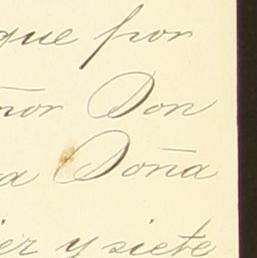 que por
ñor Don
a Doña
y siete